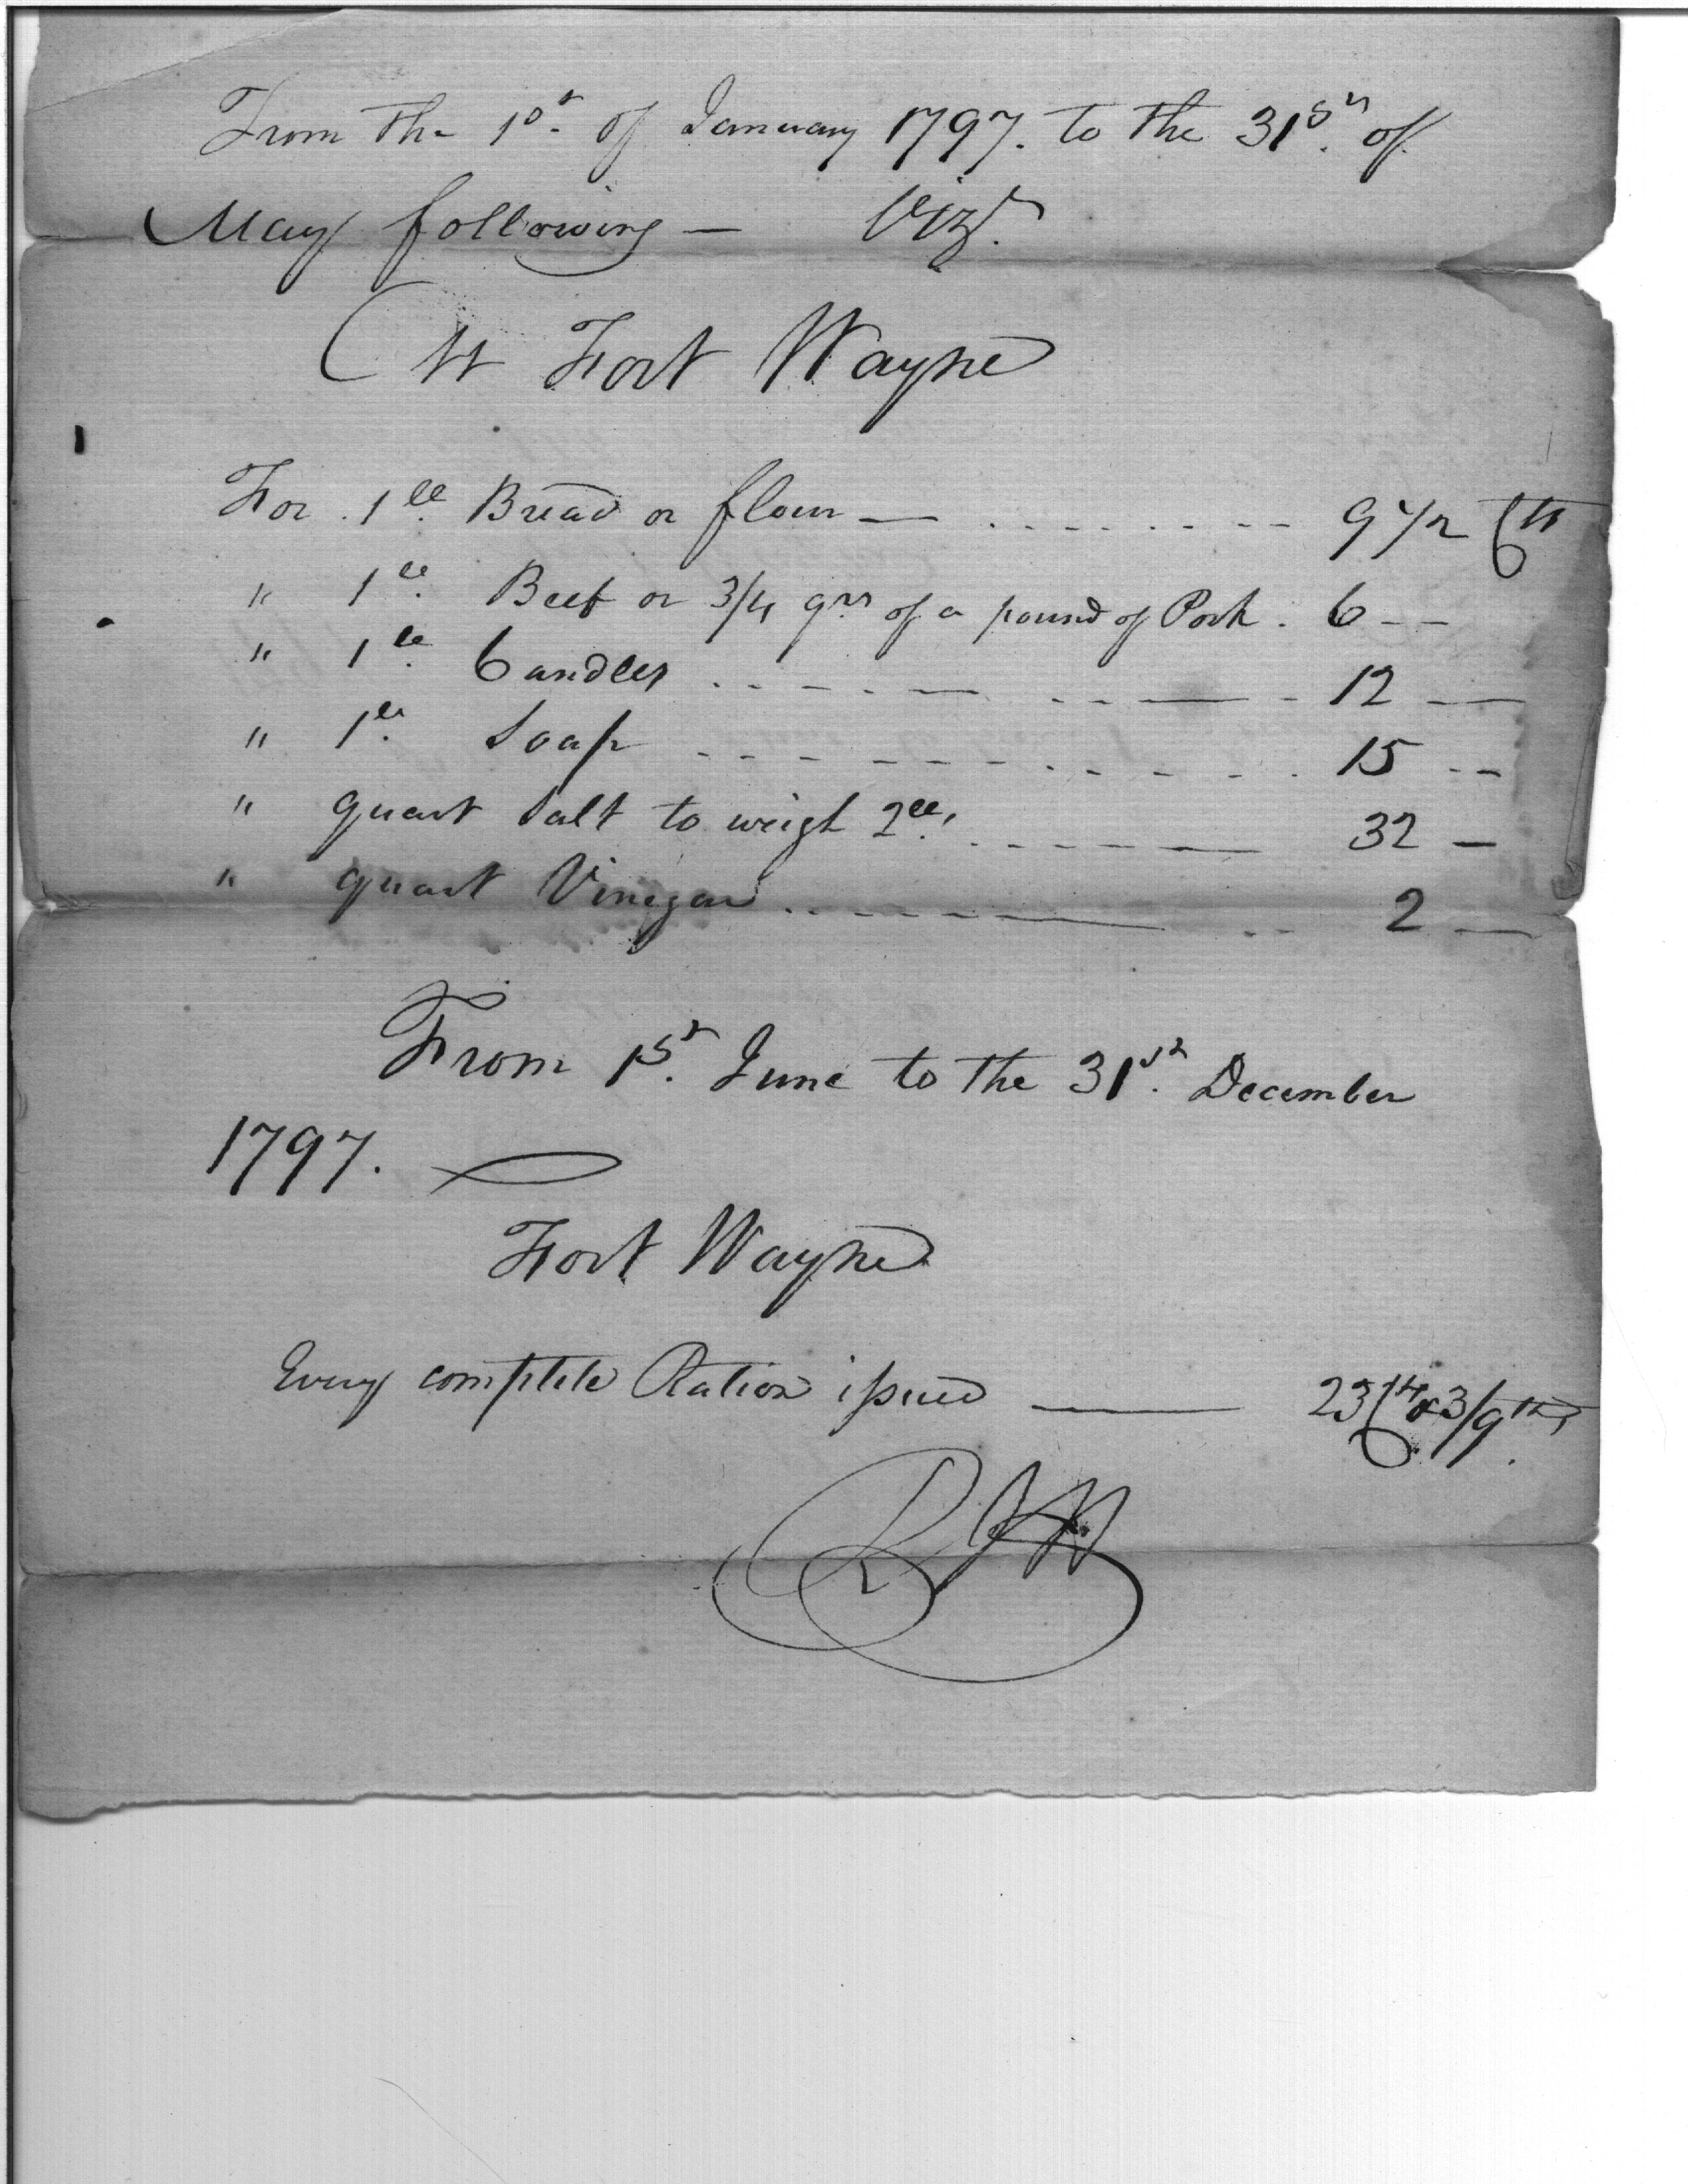 From the 1st. of January 1797. to the 31st. of
May following — Vizt.
At Fort Wayne
For 1 lb. Bread or flour — 9 1/2 Cts
" 1 lb. Beef or 3/4 qrs of a pound of Pork . 6 --
" 1 lb. Candles 12 —
" 1 lb. Soap 15 --
" quart Salt to weigh 2 lbs. 32 —
" quart Vinegar 2 —
From 1st. June to the 31st. December
1797.
Fort Wayne
Every complete Ration issued — 23 Cts & 3/9ths.